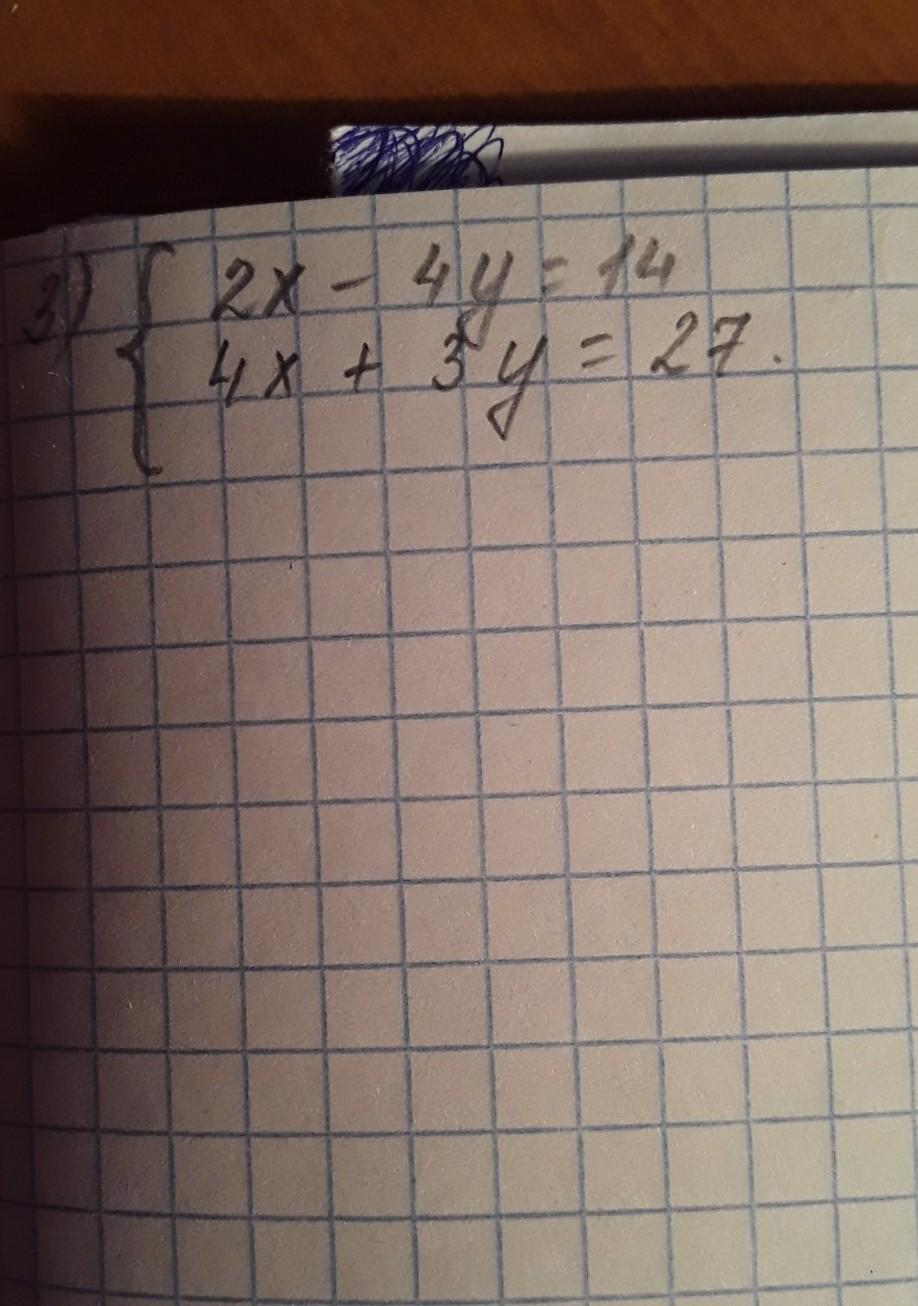 3) { 2x - 4y = 14
4x + 3y = 27.